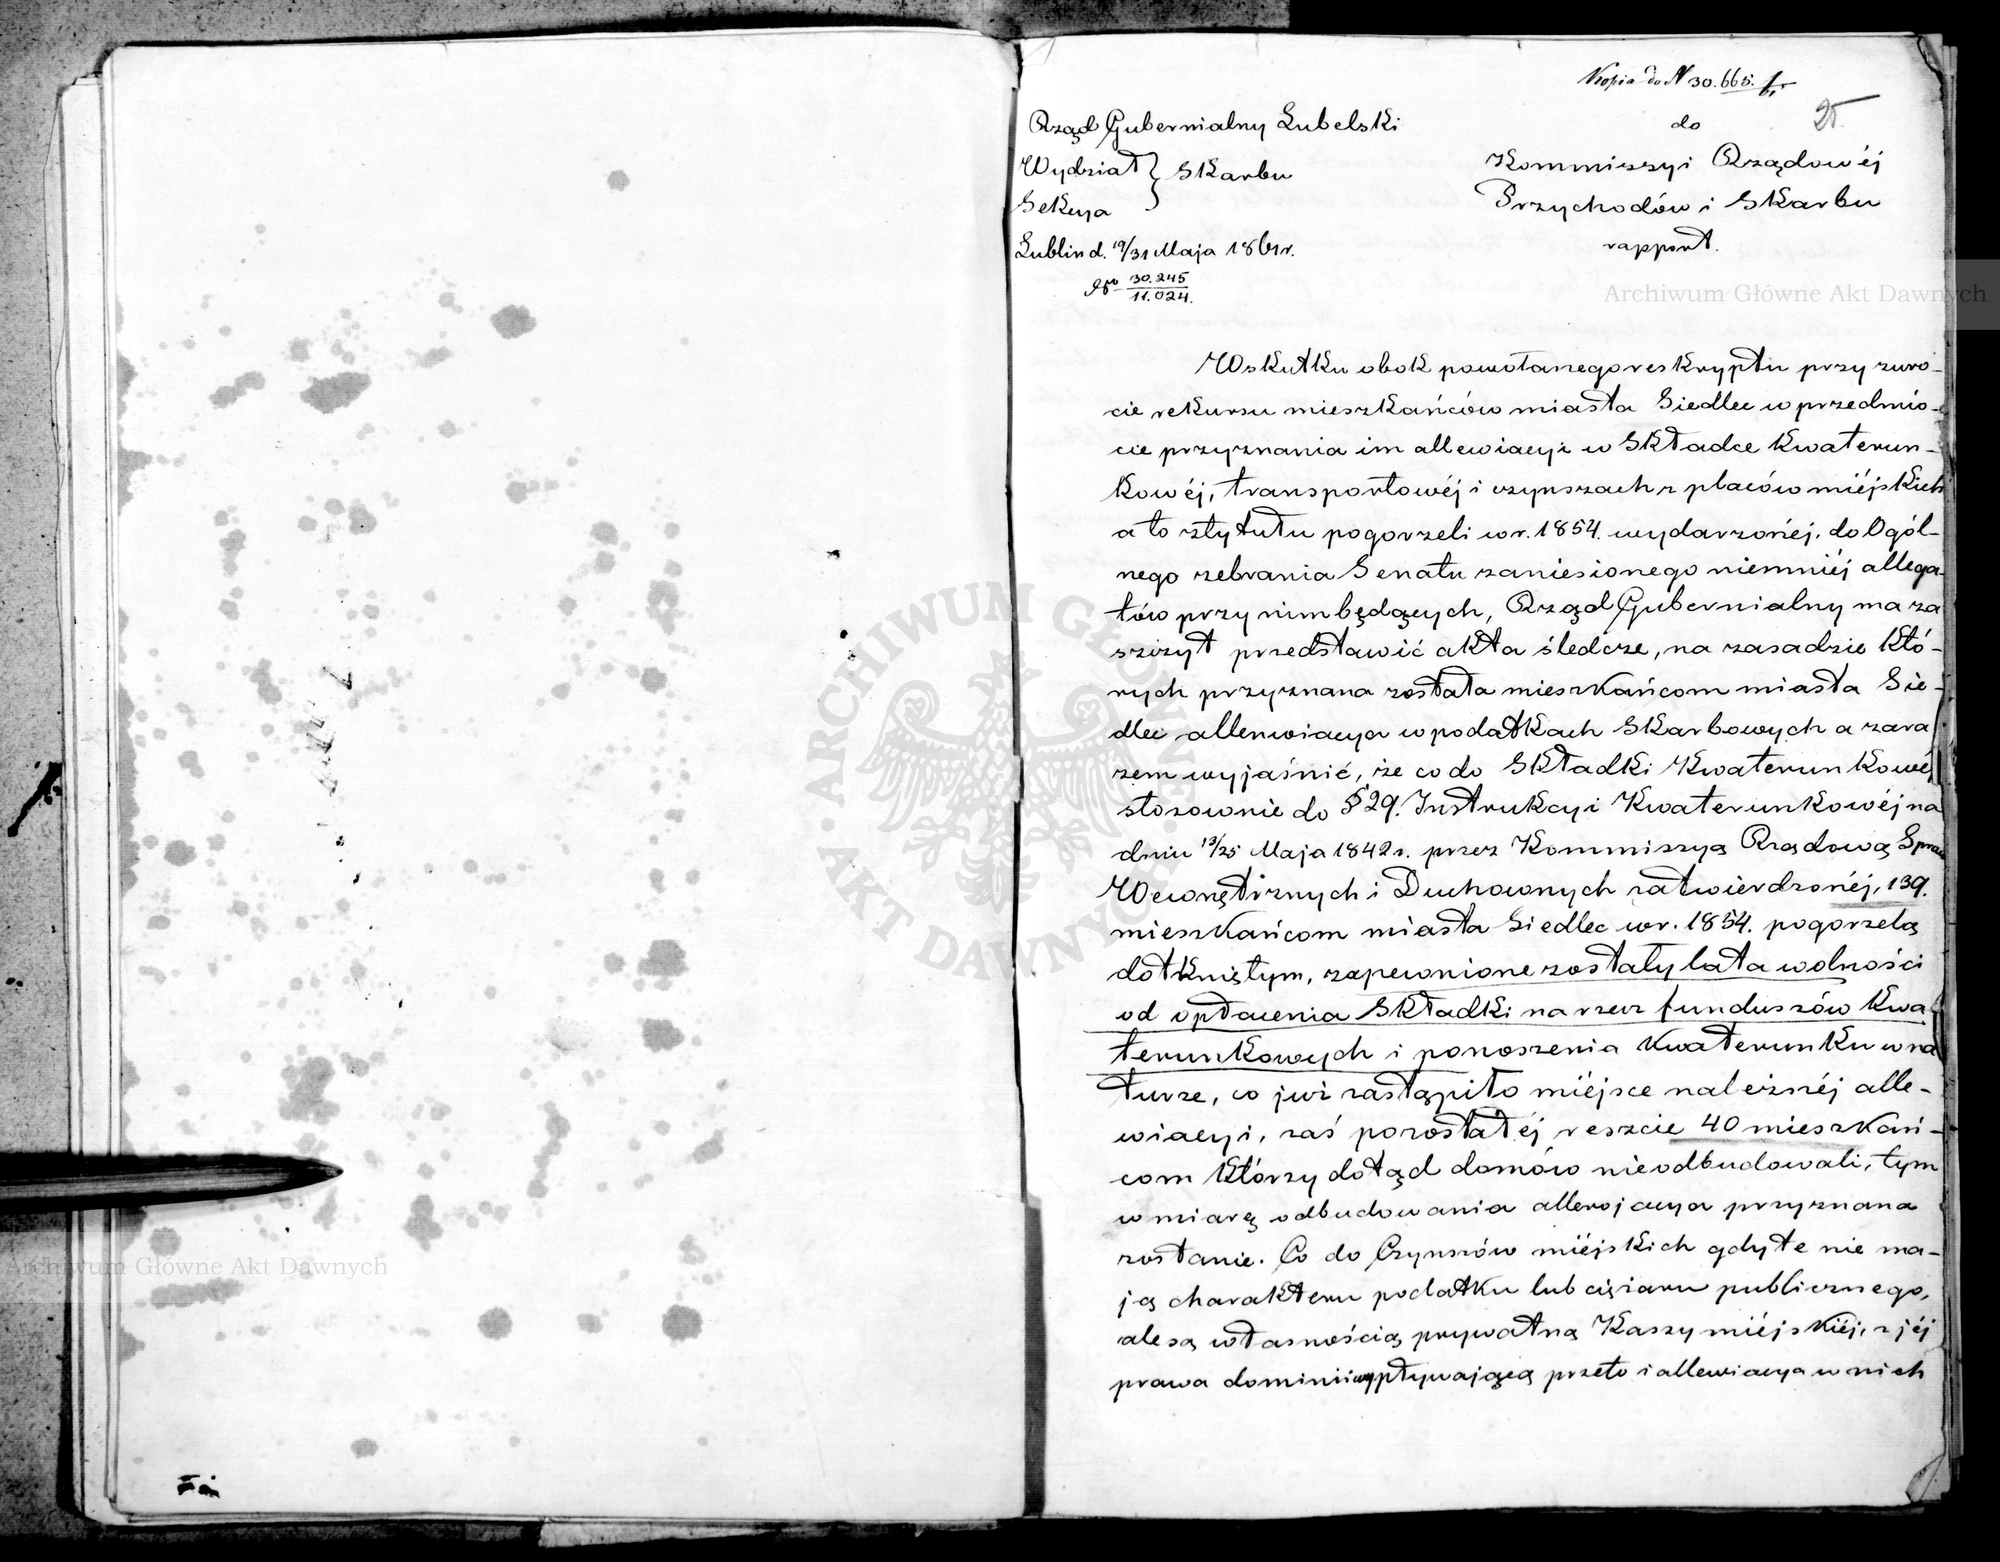 Kopia do N 30.665.
25
Rząd Gubernialny Lubelski
do
Wydział } Skarbu
Kommissyi Rządowéj
Sekcya
Przychodów i Skarbu
Lublin d. 19/31 Maja 1861 r.
rapport.
No 30.245/11.024.
Wskutku obok powołanego reskryptu przy zwro-
cie rekursu mieszkańców miasta Siedlec w przedmio-
cie przyznania im allewiacyi w Składce Kwaterun-
kowéj, transportowéj i czynszach z placów miéjskich
a to z tytutu pogorzeli w r. 1854. wydarzonéj, do Ogól-
nego zebrania Senatu zaniesionego niemniéj allega-
tów przy nim będących, Rząd Gubernialny ma za
szczyt przedstawić akta śledcze, na zasadzie Któ-
rych przyznana została mieszkańcom miasta Sie-
dlec allewiacya w podatkach Skarbowych a zara
zem wyjaśnić, że co do Składki Kwaterunkowéj
stosownie do § 29. Instrukcyi Kwaterunkowéj na
dniu 13/25 Maja 1842 r. przez Kommissyą Rządową Spraw
Wewnętrznych i Duchownych zatwierdzonéj, 139.
mieszkańcom miasta Siedlec w r. 1854. pogorzelą
dotkniętym, zapewnione zostały lata wolności
od opłacenia Składki na rzecz funduszów Kwa
terunkowych i ponoszenia Kwaterunku w na
turze, co już zastąpiło miéjsce należnéj alle-
wiacyi, zaś pozostałéj reszcie 40 mieszkań-
com Którzy dotąd domów nieodbudowali, tym
w miarę odbudowania allewjacya przyznana
zostanie. Co do Czynszów miéjskich gdy te nie ma-
ją charakteru podatku lub ciężaru publicznego,
ale są własnością prywatną Kassy miéjskiéj, z jéj
prawa dominii wypływającą przeto i allewiacya w nich
Archiwum Główne Akt Dawnych
Archiwum Główne Akt Dawnych
ARCHIWUM GŁÓWNE · AKT DAWNYCH ·